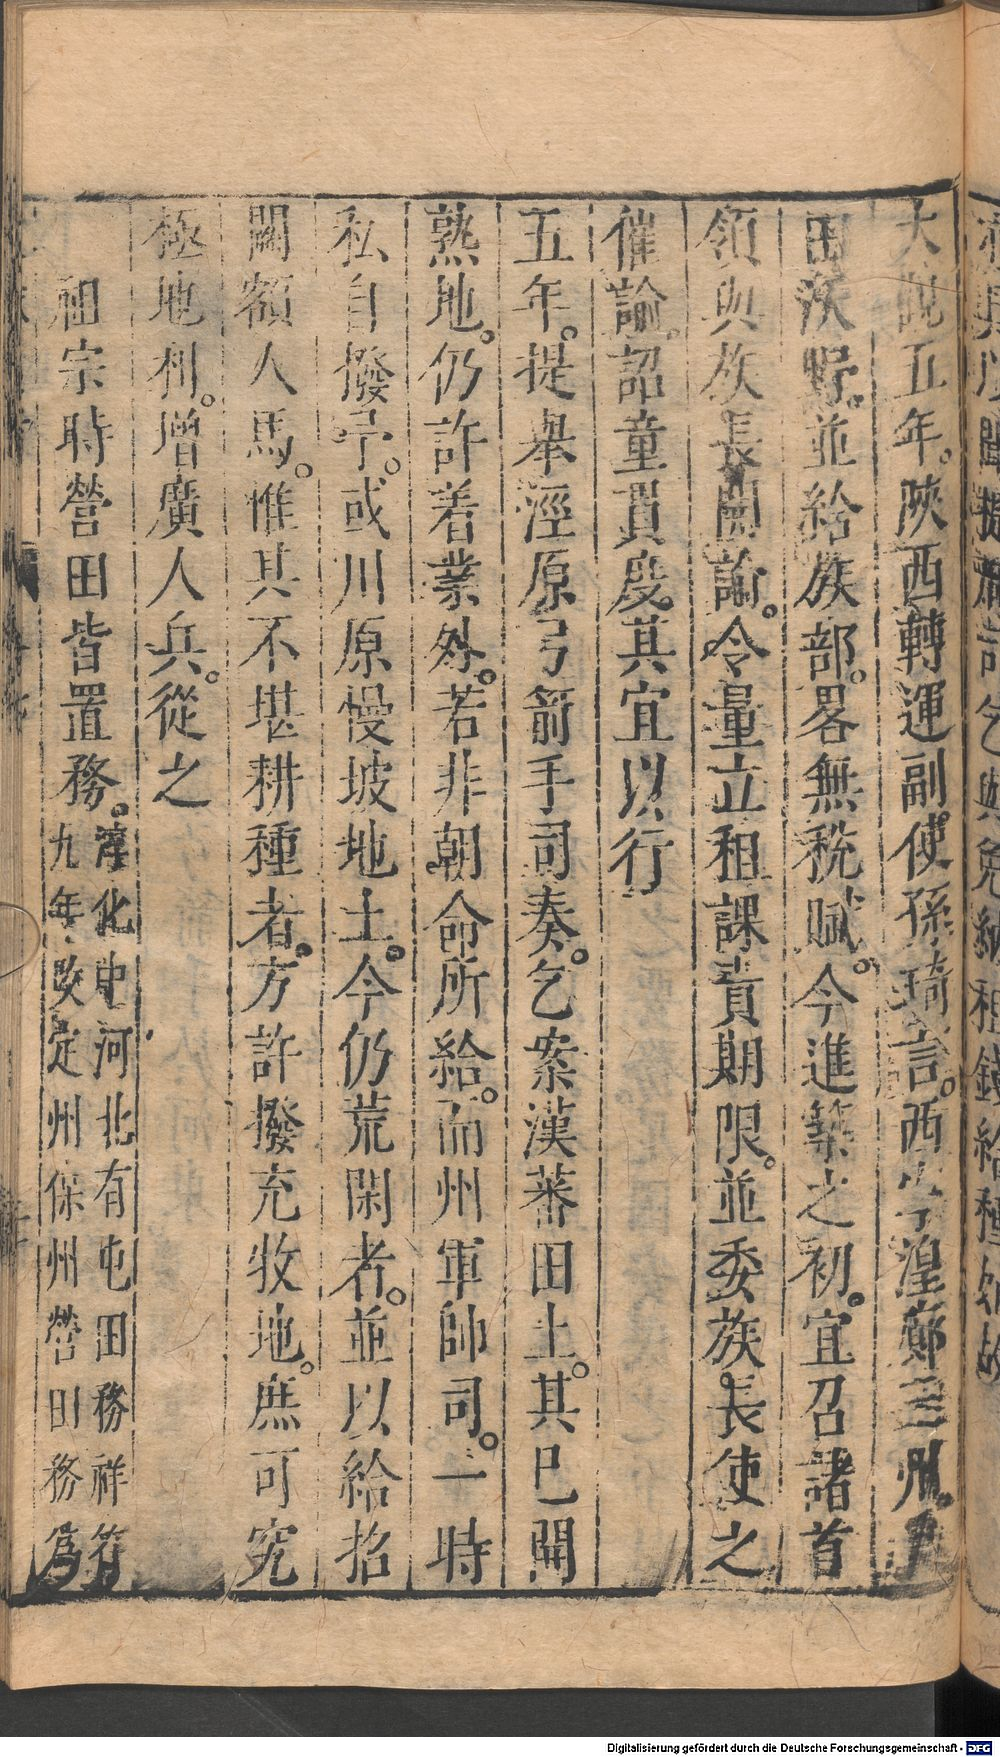 大觀五年。陜西轉運副使孫琦言。西寧湟鄯三州。
田沃野。並給族部。畧無稅賦。今進築之初。宜召諸首
領與族長開諭。令量立租課責期限。並委族長使之
催諭。詔童貫度其宜以行
五年。提舉涇原弓箭手司奏。乞案漢蕃田土。其已開
熟地。仍許着業外。若非朝命所給。而州軍帥司。一時
私自撥予。或川原慢坡地土。今仍荒閑者。並以給招
闕額人馬。惟其不堪耕種者。方許撥充牧地。庶可究
極地利。增廣人兵。從之
祖宗時營田皆置務。淳化中河北有屯田務祥符
九年改定州保州營田務爲
Digitalisierung gefördert durch die Deutsche Forschungsgemeinschaft - DFG